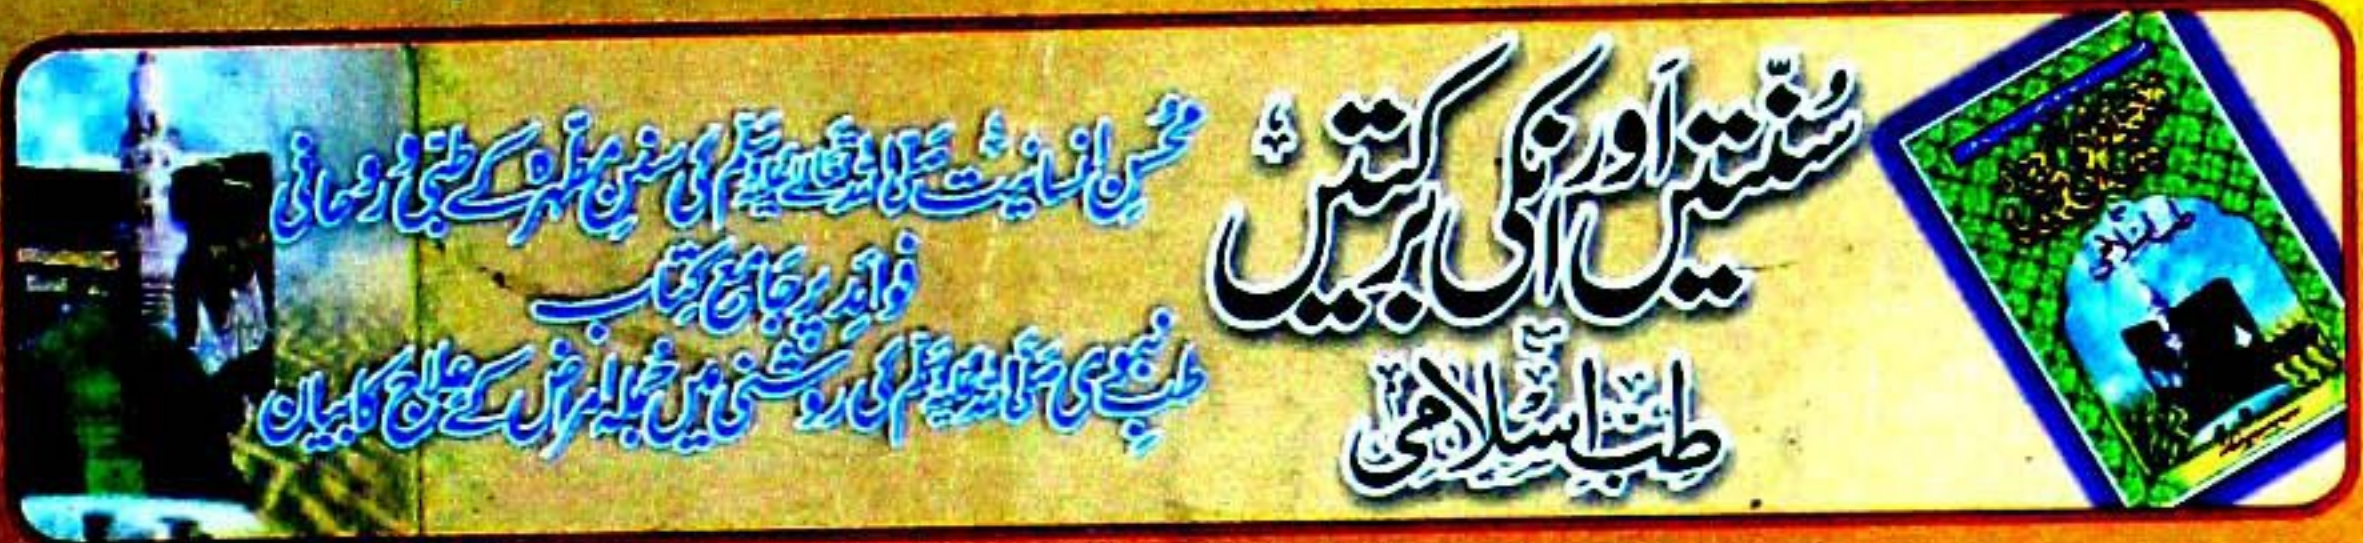 سُنّتیں اَور انکی برکتیں
طِبِّ اِسلامی
مُحسنِ اِنسانیت صَلَّی اللہُ تَعَالٰی عَلَیْہِ وَسَلَّم کی سننِ مطہرہ کے طبّی و رُوحانی
فوائد پر جَامع کِتاب
طبِ نبوی صَلَّی اللہُ عَلَیْہِ وَسَلَّم کی روشنی میں جُملہ امراض کے عِلاج کا بیان
طب اسلامی